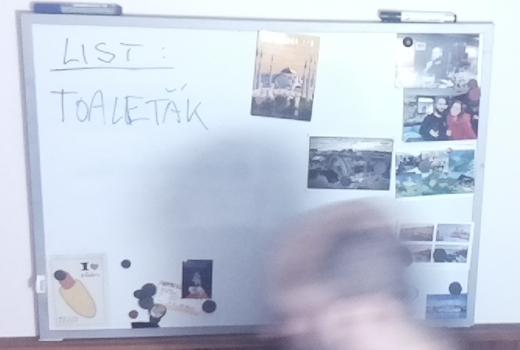 LIST :
TOALEŤÁK
I